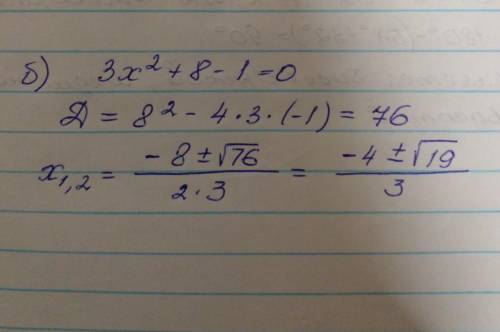 б) 3x² + 8 - 1 = 0
Д = 8² - 4 · 3 · (-1) = 76
x₁,₂ = (-8 ± √76) / (2 · 3) = (-4 ± √19) / 3